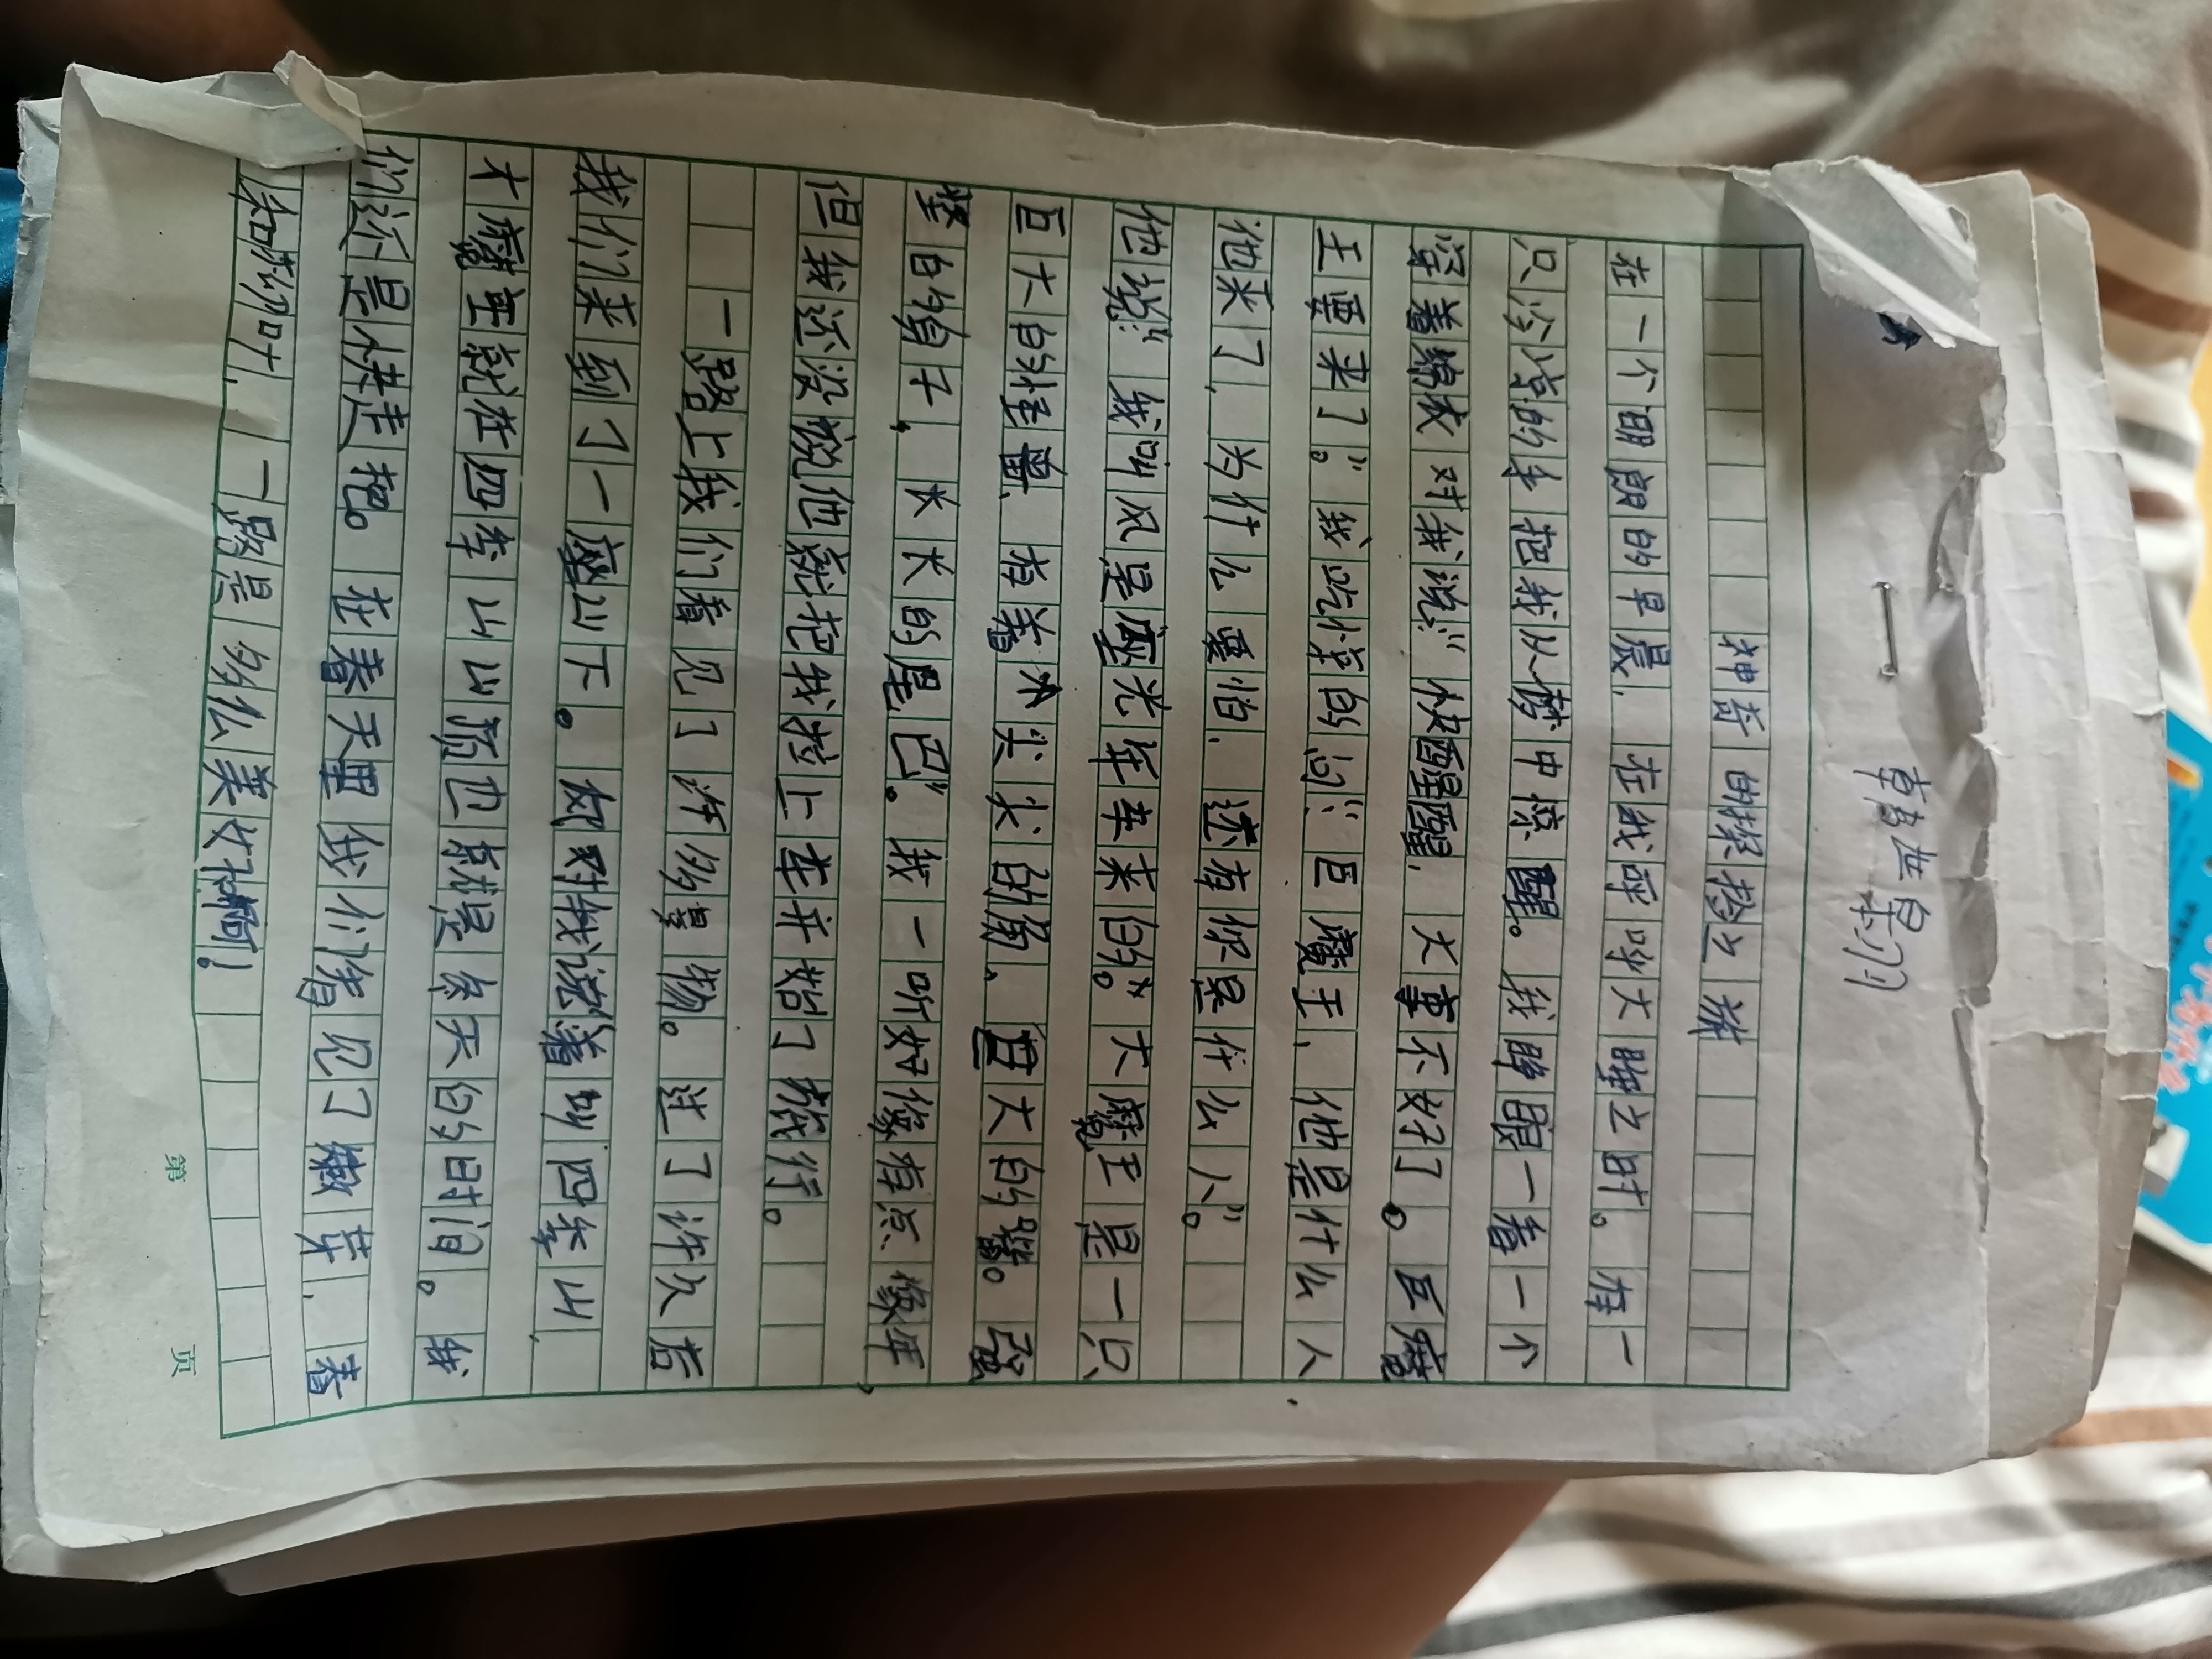 神奇的探险之旅
在一个明朗的早晨，在我呼呼大睡之时。有一
只冷冰的手把我从梦中惊醒。我睁眼一看一个
穿着 对我说：“快醒醒，大事不好了。巨魔
王要来了”。我吃惊的问：“巨魔王，他是什么人
他来了，为什么要怕，还有你是什么人”。
他说：“我叫风是座光年车来的。”大魔王是一只
巨大的怪兽，有着尖尖的角、巨大的 。强
坚的身子，长长的尾巴”。我一听好像有点像年
但我还没说他就把我拉上车开始了旅行。
一路上我们看见了许多景物。过了许久后
我们来到了一座山下。 对我说着叫四季山，
大魔王就在四季山山顶也就是冬天的时间。我
们还是快走把。在春天里我们看见了嫩芽，春
一路是多么美好啊！
第 页